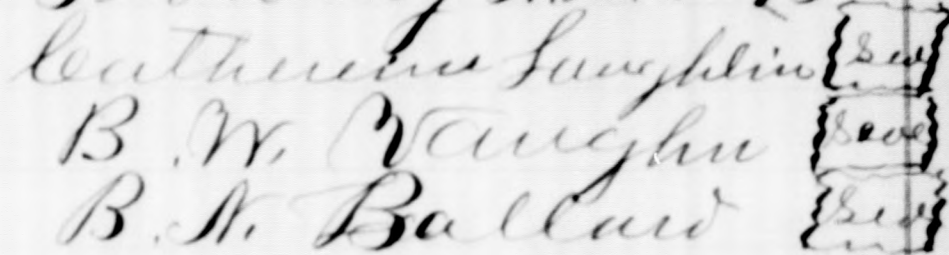 Catherine Laughlin Seal
B. W. Vaughn Seal
B. N. Ballard Seal